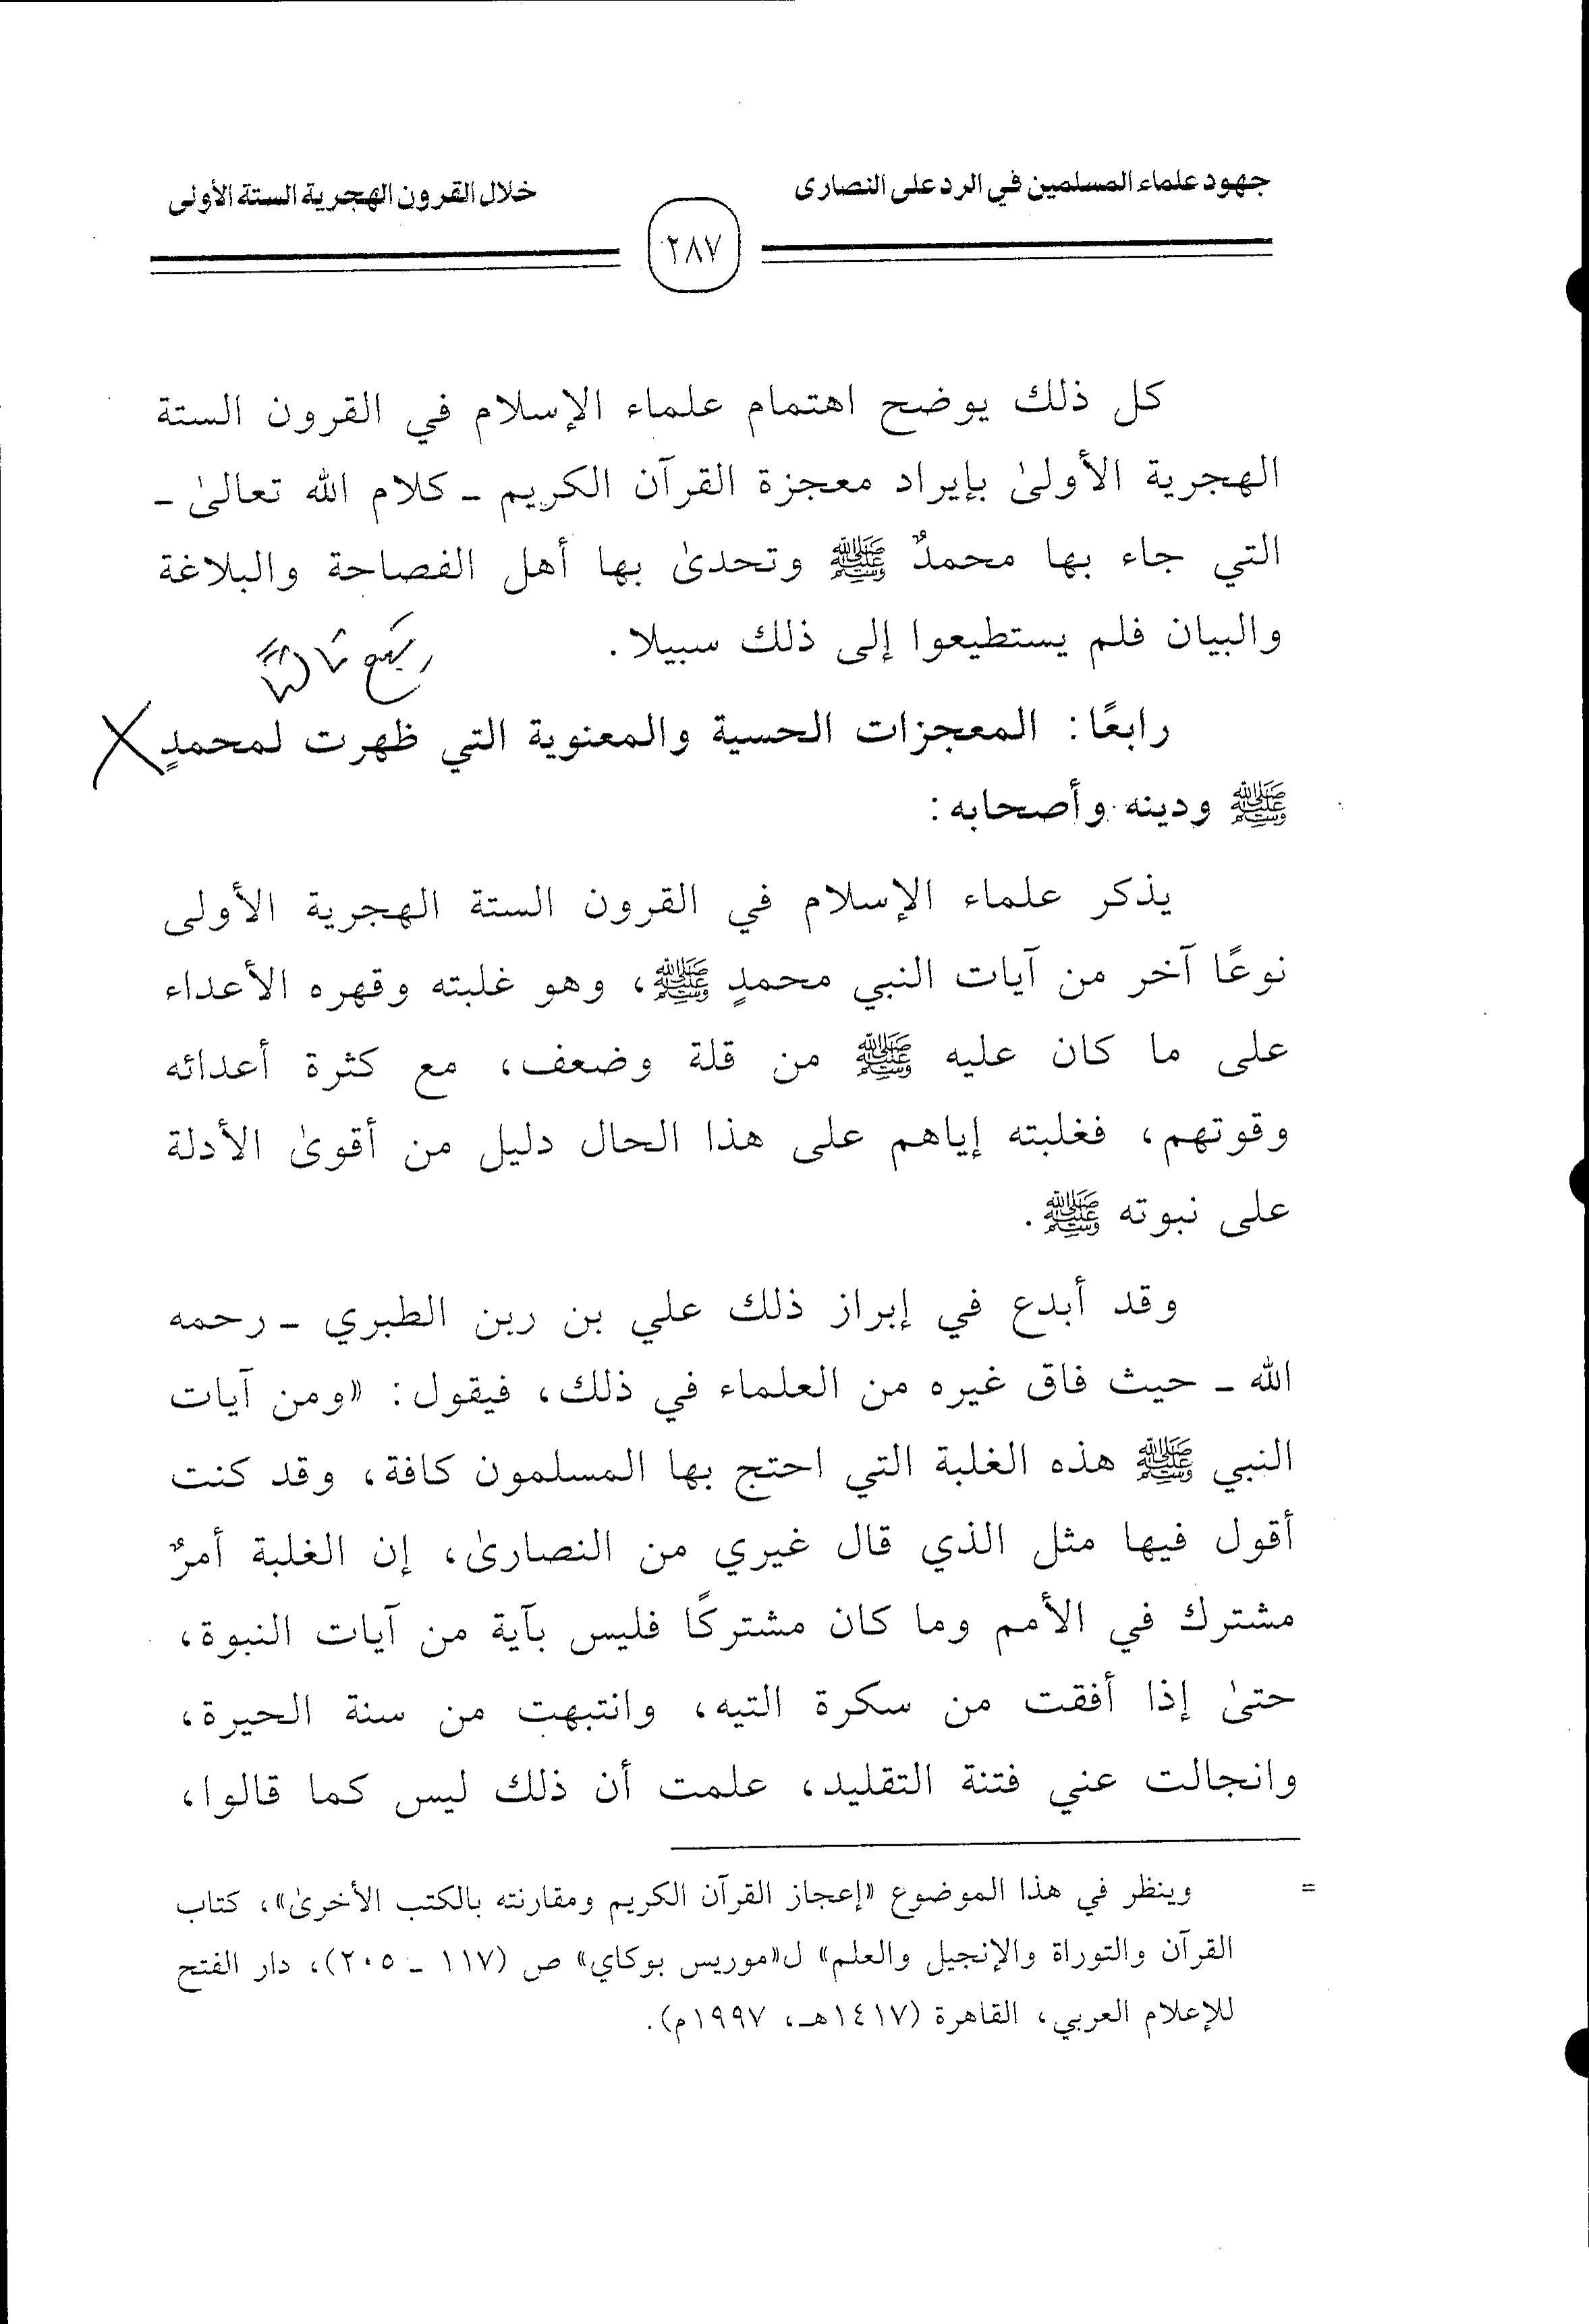 جهود علماء المسلمين في الرد على النصارى
خلال القرون الهجرية الستة الأولى
٢٨٧
كل ذلك يوضح اهتمام علماء الإسلام في القرون الستة
الهجرية الأولىٰ بإيراد معجزة القرآن الكريم ـ كلام الله تعالىٰ ـ
التي جاء بها محمدٌ ﷺ وتحدىٰ بها أهل الفصاحة والبلاغة
والبيان فلم يستطيعوا إلى ذلك سبيلا.
رابعًا: المعجزات الحسية والمعنوية التي ظهرت لمحمدٍ
ﷺ ودينه وأصحابه:
يذكر علماء الإسلام في القرون الستة الهجرية الأولى
نوعًا آخر من آيات النبي محمدٍ ﷺ، وهو غلبته وقهره الأعداء
على ما كان عليه ﷺ من قلة وضعف، مع كثرة أعدائه
وقوتهم، فغلبته إياهم على هذا الحال دليل من أقوىٰ الأدلة
على نبوته ﷺ.
وقد أبدع في إبراز ذلك علي بن ربن الطبري ـ رحمه
الله ـ حيث فاق غيره من العلماء في ذلك، فيقول: «ومن آيات
النبي ﷺ هذه الغلبة التي احتج بها المسلمون كافة، وقد كنت
أقول فيها مثل الذي قال غيري من النصارىٰ، إن الغلبة أمرٌ
مشترك في الأمم وما كان مشتركًا فليس بآية من آيات النبوة،
حتىٰ إذا أفقت من سكرة التيه، وانتبهت من سنة الحيرة،
وانجالت عني فتنة التقليد، علمت أن ذلك ليس كما قالوا،
= وينظر في هذا الموضوع «إعجاز القرآن الكريم ومقارنته بالكتب الأخرىٰ»، كتاب
القرآن والتوراة والإنجيل والعلم» ل«موريس بوكاي» ص (١١٧ ـ ٢٠٥)، دار الفتح
للإعلام العربي، القاهرة (١٤١٧هـ، ١٩٩٧م).